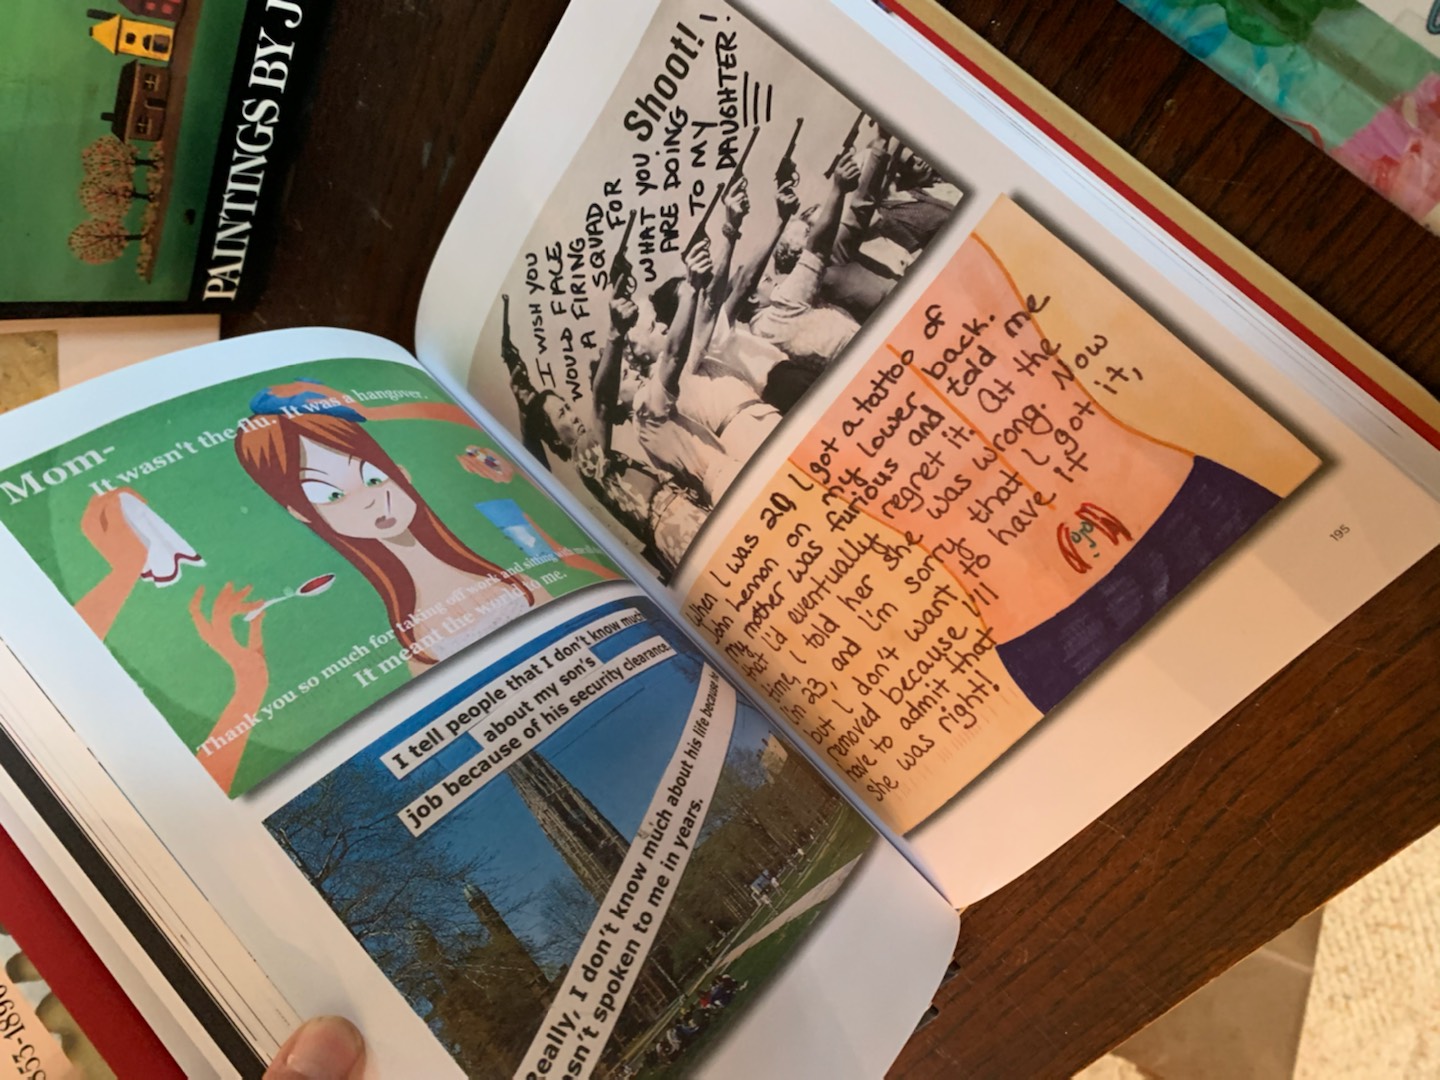 PAINTINGS BY J
Mom-
It wasn't the flu. It was a hangover.
Thank you so much for taking off work and sitting with me.
It meant the world to me.
I tell people that I don't know much
about my son's
job because of his security clearance.
Really, I don't know much about his life because he
hasn't spoken to me in years.
Shoot!
I WISH YOU
WOULD FACE
A FIRING
SQUAD
FOR
WHAT YOU
ARE DOING
TO MY
DAUGHTER!
When I was 20 I got a tattoo of
John Lennon on my lower back.
My mother was furious and told me
that I'd eventually regret it. At the
time, I told her she was wrong. Now
I'm 23, and I'm sorry that I got it,
but I don't want to have it
removed because I'll
have to admit that
she was right!
195